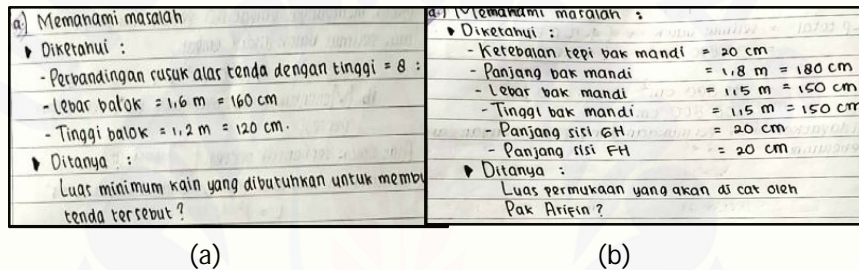 a.) Memahami masalah
Diketahui :
- Perbandingan rusuk alas tenda dengan tinggi = 8 :
- Lebar balok = 1,6 m = 160 cm
- Tinggi balok = 1,2 m = 120 cm.
Ditanya :
Luas minimum kain yang dibutuhkan untuk membu
tenda tersebut?
a.) Memahami masalah :
Diketahui :
- Ketebalan tepi bak mandi = 20 cm
- Panjang bak mandi = 1,8 m = 180 cm
- Lebar bak mandi = 1,5 m = 150 cm
- Tinggi bak mandi = 1,5 m = 150 cm
- Panjang sisi GH = 20 cm
- Panjang sisi FH = 20 cm
Ditanya :
Luas permukaan yang akan di cat oleh
Pak Arifin?
(a)
(b)